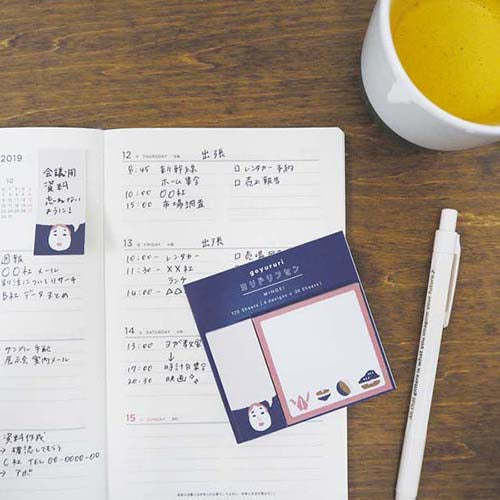 2019
12
会議用
資料
忘れない
ように!
週報
〇〇社 メール
B社 データまとめ
サンプル 手配
展示会 案内メール
資料作成
→ 確認してもらう
C社 TEL 00-0000-00
→ アポ
12 THURSDAY 出張
8:45 新幹線
ホーム集合
10:00 〇〇社
15:00 市場調査
□ レンタカー 予約
□ 売上報告
13 FRIDAY 出張
10:00- レンタカー
11:30 - ××社
ランチ
14:00 - △△
14 SATURDAY
13:00 ヨガ教室
↓
17:00
20:30 映画
15 SUNDAY
goyururi
ヨリドリフセン
MINGEI
120 Sheets (4 designs x 30 Sheets)